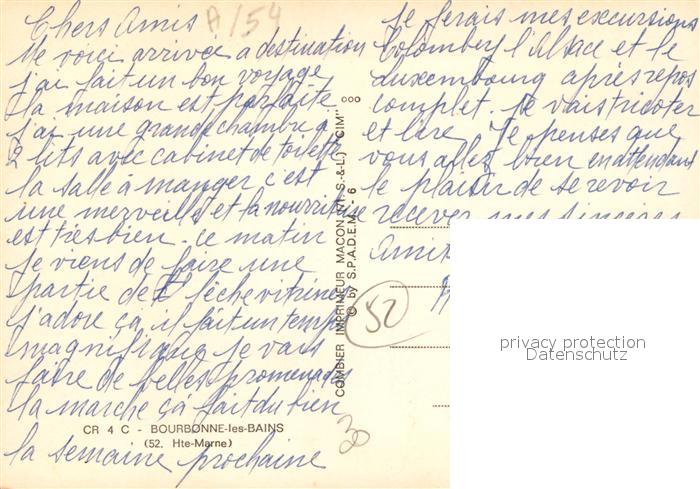 Chers Amis A/54
Me voici arrivée a destination
j'ai fait un bon voyage
la maison est parfaite
j'ai une grande chambre a
2 lits avec cabinet de toilette
la salle à manger c'est
une merveille et la nourriture
est très bien. ce matin
je viens de faire une
partie de lèche vitrines
j'adore ça, il fait un temps
magnifique je vais
faire de belles promenades
la marche ça fait du bien
CR 4 C - BOURBONNE-les-BAINS
(52. Hte-Marne)
la semaine prochaine
COMBIER IMPRIMEUR MACON (S.-&-L.) "CIM"
© by S.P.A.D.E.M. 6
je ferais mes excursions
Colombey l'Alsace et le
Luxembourg après repos
complet. je vais tricoter
et lire. Je penses que
vous allez bien en attendant
le plaisir de se revoir
recever mes sincères
52
30
privacy protection
Datenschutz